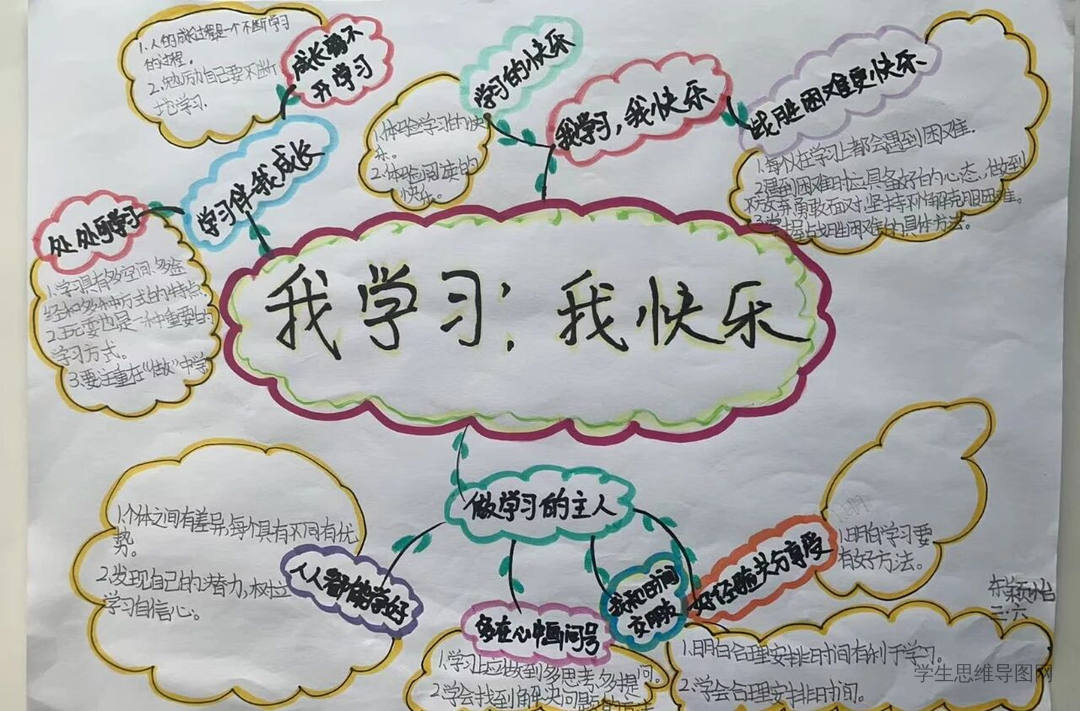 我学习，我快乐
学习伴我成长
成长离不
开学习
1.人的成长过程是一个不断学习
的过程。
2.勉励自己要不断
地学习.
处处可学习
1.学习具有多空间、多途
径和多种方式的特点.
2.玩耍也是一种重要的
学习方式。
3.要注重在“做”中学
我学习，我快乐
学习的快乐
1.体验学习的快
乐。
2.体验阅读的
快乐。
战胜困难更快乐
1.每人在学习上都会遇到困难.
2.遇到困难时应具备好的心态,做到
不放弃勇敢面对,坚持不懈克服困难。
战胜困难的具体方法。
做学习的主人
人人都能学好
1.个体之间有差异,每个具有不同有优
势。
2.发现自己的潜力,树立
学习自信心。
多在心中画问号
1.学习上应做到多思考,多提问。
2.学会找到解决问题的方法
我和时间
交朋友
1.明白合理安排时间有利于学习.
2.学会合理安排时间.
好经验共分享
1.明白学习要
有好方法。
三.六
学生思维导图网